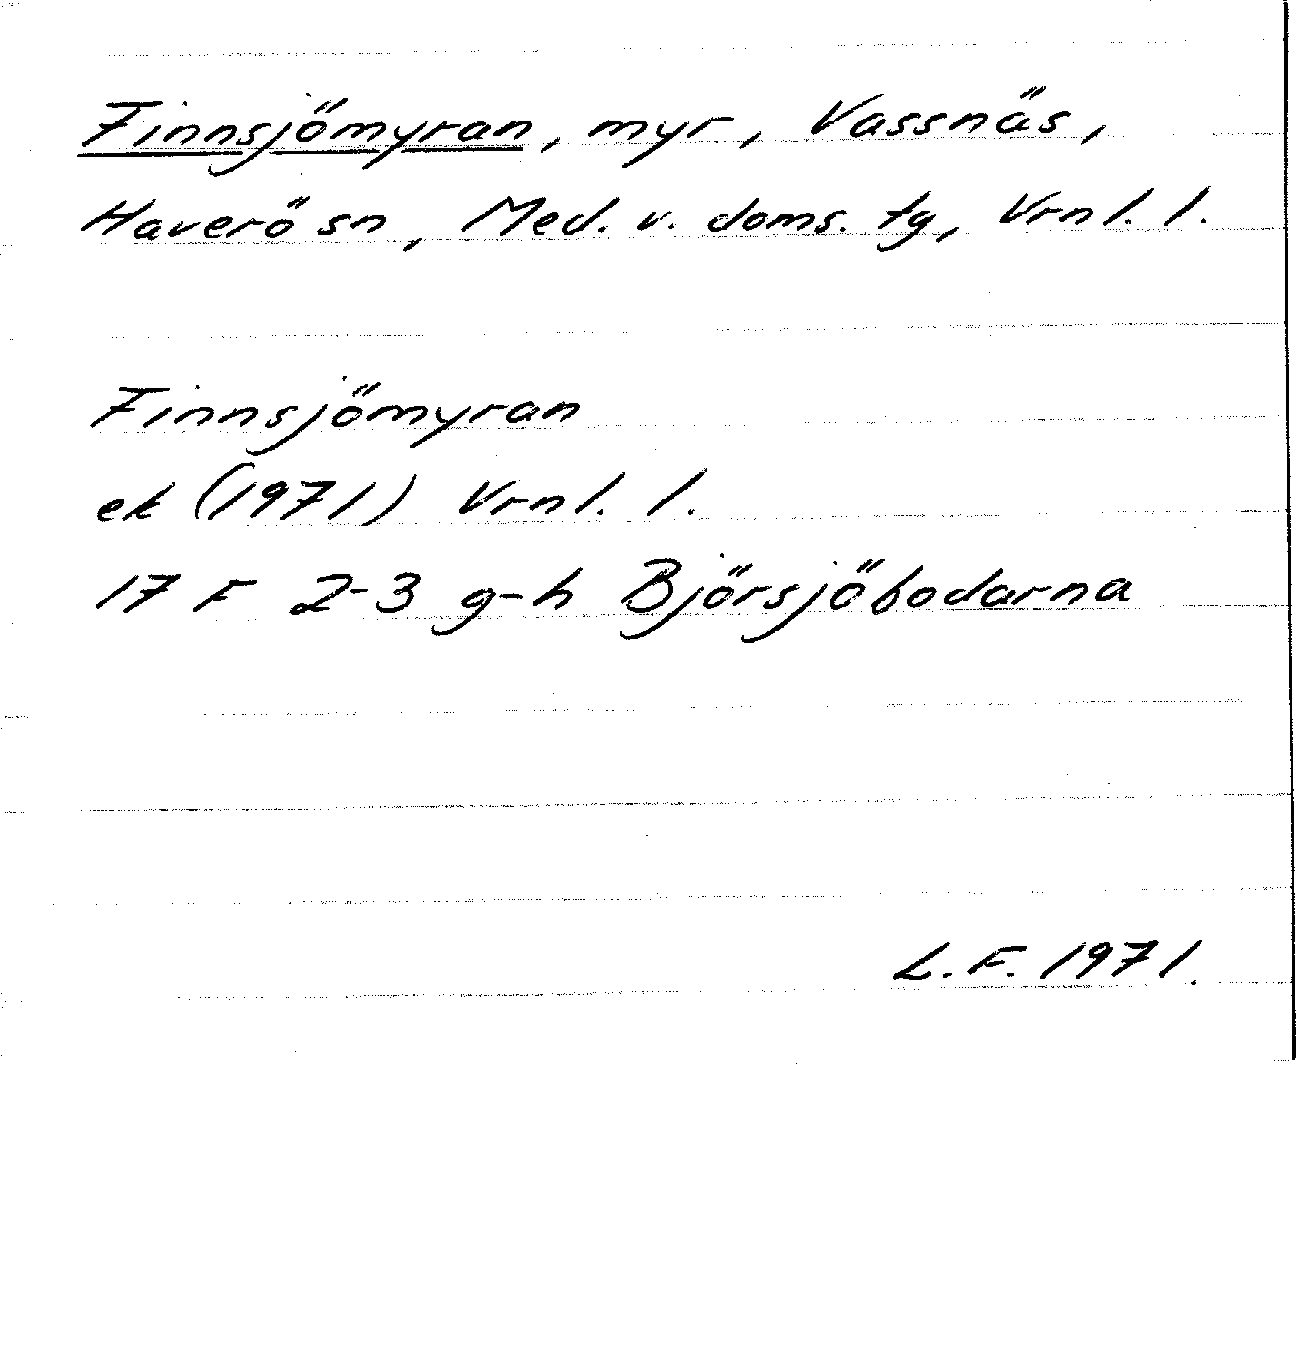 Finnsjömyran, myr, Vassnäs,
Haverö sn, Med. v. doms. tg, Vrnl. l.
Finnsjömyran
ek (1971) Vrnl. l.
17 F 2-3 g-h Björsjöbodarna
L.F. 1971.